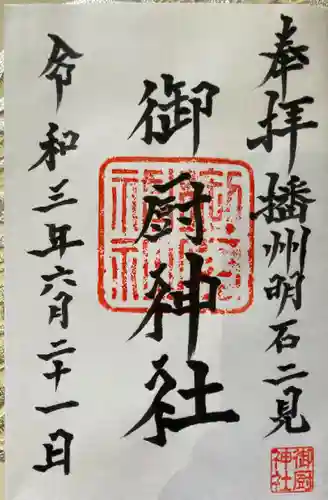 奉拝
播州明石二見
御厨神社
令和三年六月二十一日
御厨
神社